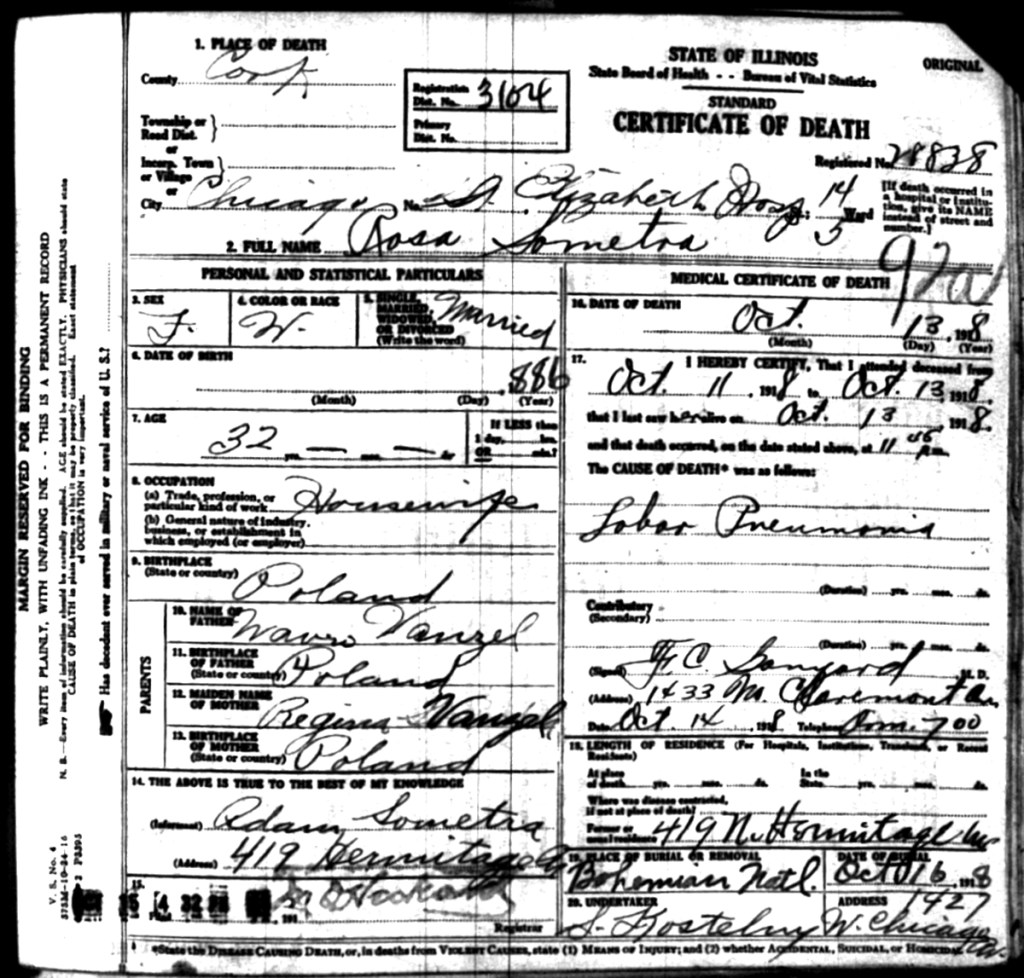 1. PLACE OF DEATH
County Cook
Registration Dist. No. 3104
Primary Dist. No.
Township or Road Dist.
or
Incorp. Town or Village
or
City Chicago No. St. Elizabeth Hosp St.; 14 Ward
3
2. FULL NAME Rosa Sometra
STATE OF ILLINOIS
State Board of Health - - Bureau of Vital Statistics
ORIGINAL
STANDARD
CERTIFICATE OF DEATH
Registered No. 28838
[If death occurred in a hospital or Institution, give its NAME instead of street and number.]
92a
PERSONAL AND STATISTICAL PARTICULARS
3. SEX F.
4. COLOR OR RACE W.
5. SINGLE, MARRIED, WIDOWED, OR DIVORCED (Write the word) Married
6. DATE OF BIRTH
1886
(Month) (Day) (Year)
7. AGE
32 yrs. — mos. — ds
If LESS than 1 day, hrs. OR min.?
8. OCCUPATION
(a) Trade, profession, or particular kind of work Housewife
(b) General nature of industry, business, or establishment in which employed (or employer)
9. BIRTHPLACE
(State or country) Poland
PARENTS
10. NAME OF FATHER Wavro Vanzel
11. BIRTHPLACE OF FATHER (State or country) Poland
12. MAIDEN NAME OF MOTHER Regina Vanzel
13. BIRTHPLACE OF MOTHER (State or country) Poland
14. THE ABOVE IS TRUE TO THE BEST OF MY KNOWLEDGE
(Informant) Adam Sometra
(Address) 419 Hermitage Av
15.
191
Registrar
MEDICAL CERTIFICATE OF DEATH
16. DATE OF DEATH
Oct. 13 1918
(Month) (Day) (Year)
17. I HEREBY CERTIFY, That I attended deceased from
Oct. 11 1918 to Oct. 13 1918.
that I last saw her alive on Oct. 13 1918.
and that death occurred, on the date stated above, at 11 pm.
The CAUSE OF DEATH* was as follows:
Lobar Pneumonia
(Duration) yrs. mos. ds.
Contributory (Secondary)
(Duration) yrs. mos. ds.
(Signed) F. C. M. D.
(Address) 1433 N. Claremont Av
Date Oct. 14 1918 Telephone 700
18. LENGTH OF RESIDENCE (For Hospitals, Institutions, Transients, or Recent Residents)
At place of death yrs. mos. ds. In the State yrs. mos. ds.
Where was disease contracted, if not at place of death?
Former or usual residence 419 N. Hermitage Av
19. PLACE OF BURIAL OR REMOVAL Bohemian Natl.
DATE OF BURIAL Oct 16 1918
20. UNDERTAKER J. Kostelny
ADDRESS 1427 W. Chicago Av.
*State the DISEASE CAUSING DEATH, or, in deaths from VIOLENT CAUSES, state (1) MEANS OF INJURY; and (2) whether ACCIDENTAL, SUICIDAL, or HOMICIDAL
MARGIN RESERVED FOR BINDING
WRITE PLAINLY, WITH UNFADING INK - - THIS IS A PERMANENT RECORD
N. B.—Every item of information should be carefully supplied. AGE should be stated EXACTLY. PHYSICIANS should state
CAUSE OF DEATH in plain terms, so that it may be properly classified. Exact statement
of OCCUPATION is very important.
Has decedent ever served in military or naval service of U. S.?
V. S. No. 4